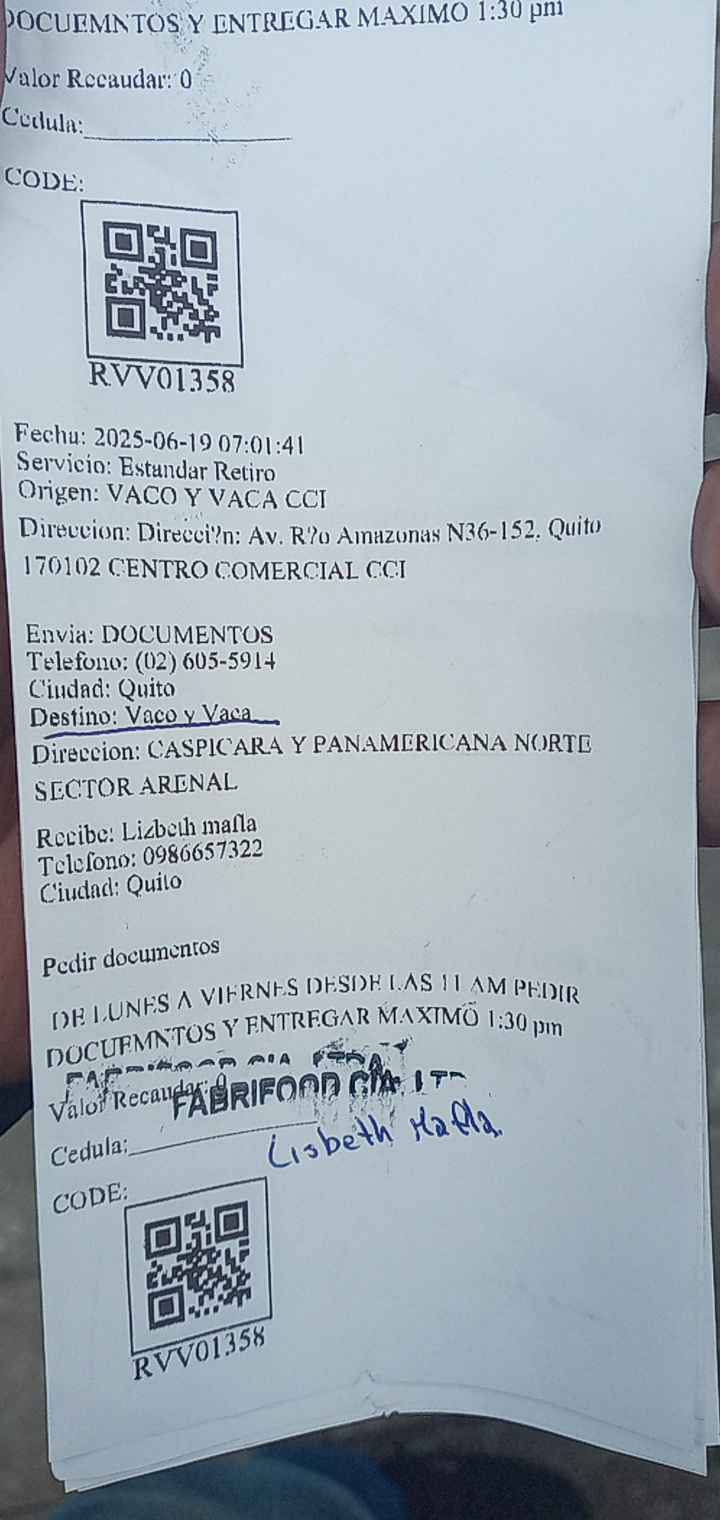 DOCUEMNTOS Y ENTREGAR MAXIMO 1:30 pm
Valor Recaudar: 0
Cedula:
CODE:
RVV01358
Fecha: 2025-06-19 07:01:41
Servicio: Estandar Retiro
Origen: VACO Y VACA CCI
Direccion: Direcci?n: Av. R?o Amazonas N36-152, Quito
170102 CENTRO COMERCIAL CCI
Envia: DOCUMENTOS
Telefono: (02) 605-5914
Ciudad: Quito
Destino: Vaco y Vaca
Direccion: CASPICARA Y PANAMERICANA NORTE
SECTOR ARENAL
Recibe: Lizbeth mafla
Telefono: 0986657322
Ciudad: Quito
Pedir documentos
DE LUNES A VIERNES DESDE LAS 11 AM PEDIR
DOCUEMNTOS Y ENTREGAR MAXIMO 1:30 pm
Valor Recaudar: 0
FABRIFOOD CIA. LTD
Cedula:
Lisbeth Mafla
CODE:
RVV01358